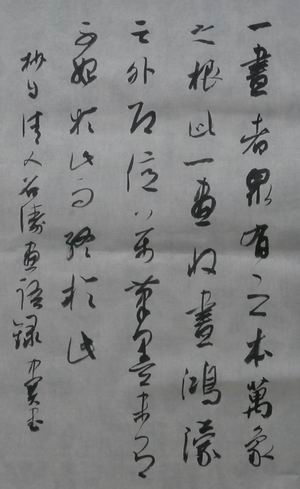 一畫者眾有之本萬象
之根此一畫收盡鴻濛
之外即億万萬筆墨未有
不始於此而終於此
抄自清人石濤畫語錄